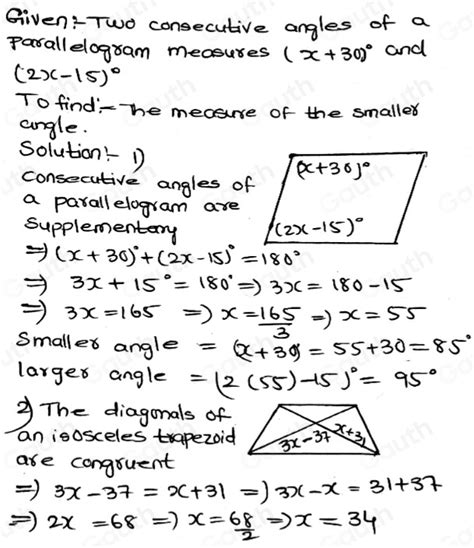 Given:- Two consecutive angles of a
Parallelogram measures (x+30)° and
(2x-15)°
To find:- The measure of the smaller
angle.
Solution:- 1)
Consecutive angles of
a parallelogram are
Supplementary
(x+30)°
(2x-15)°
⇒ (x+30)°+(2x-15)°=180°
⇒ 3x+15°=180° ⇒ 3x=180-15
⇒ 3x=165 ⇒ x=165/3 ⇒ x=55
Smaller angle = (x+30) = 55+30=85°
larger angle = (2(55)-15)°= 95°
2) The diagonals of
an isosceles trapezoid
are congruent
3x-37 x+31
⇒ 3x-37 = x+31 ⇒ 3x-x=31+37
⇒ 2x =68 ⇒ x=68/2 ⇒ x=34